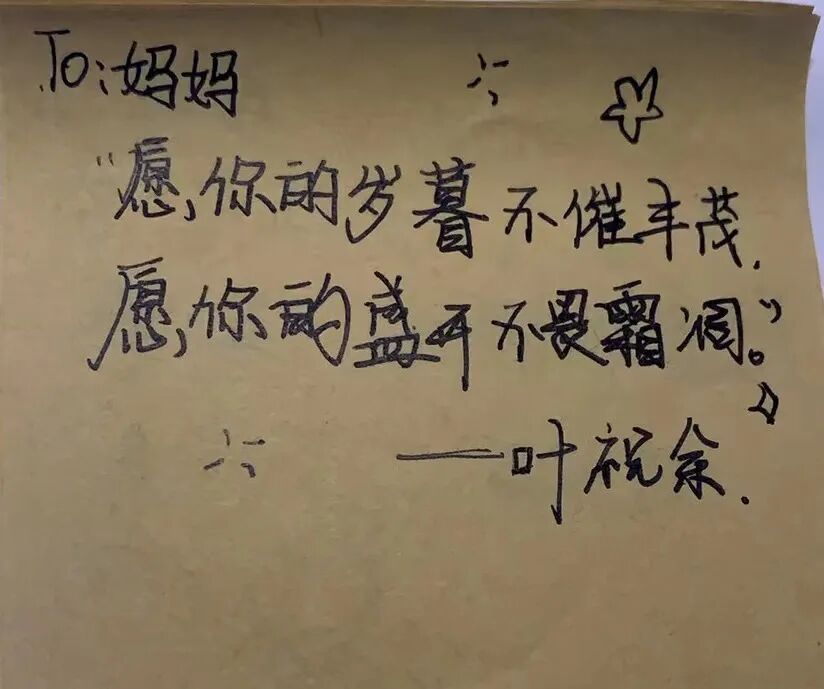 To:妈妈
“愿,你的岁暮不催丰茂.
愿,你的盛开不畏霜凋。”
——叶祝余.